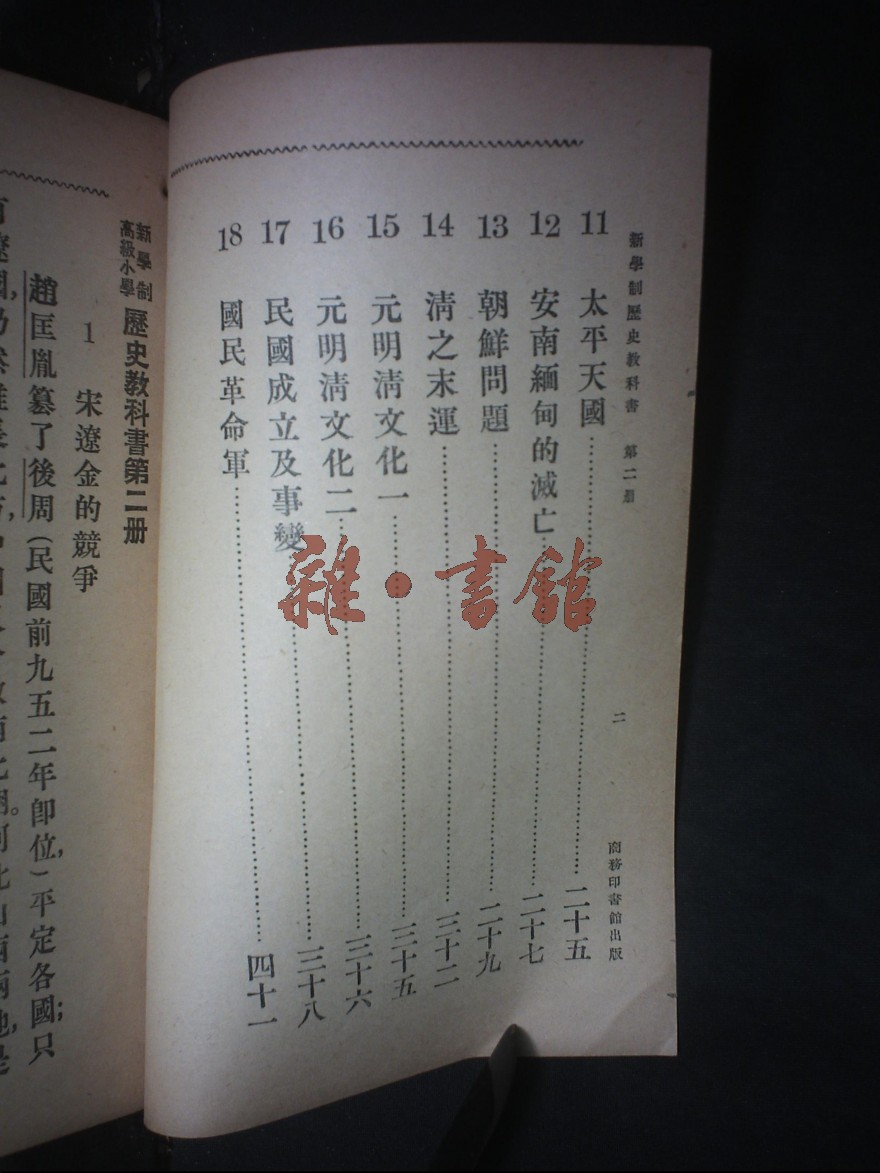 新學制歷史教科書 第二册
二
商務印書館出版
11 太平天國 二十五
12 安南緬甸的滅亡 二十七
13 朝鮮問題 二十九
14 淸之末運 三十二
15 元明淸文化一 三十五
16 元明淸文化二 三十六
17 民國成立及事變 三十八
18 國民革命軍 四十一
雜·書館
新學制
高級小學
歷史教科書第二册
1 宋遼金的競爭
趙匡胤簒了後周(民國前九五二年卽位,)平定各國;只